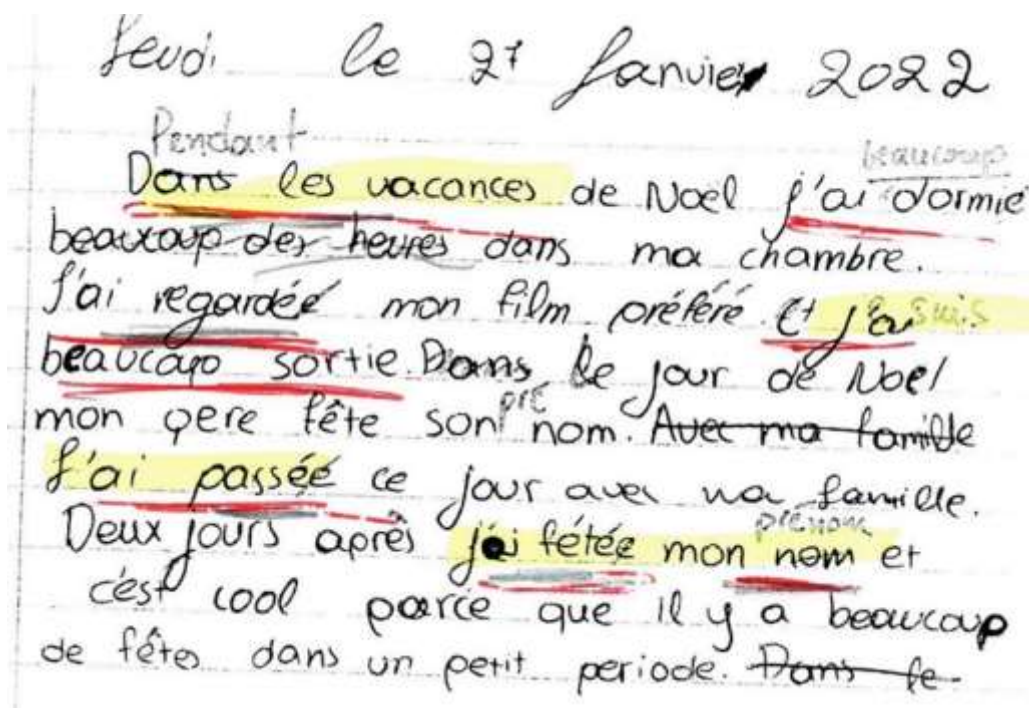 Jeudi le 27 Janvier 2022
Pendant beaucoup
Dans les vacances de Noël j'ai dormie
beaucoup des heures dans ma chambre.
J'ai regardée mon film préféré Et j'ai suis
beaucoup sortie. Dans le jour de Noël
pré
mon pere fête son nom. Avec ma famille
J'ai passée ce jour avec ma famille.
prénom
Deux jours après j'ai fétée mon nom et
c'est cool parce que il y a beaucoup
de fêtes dans un petit periode. Dans le